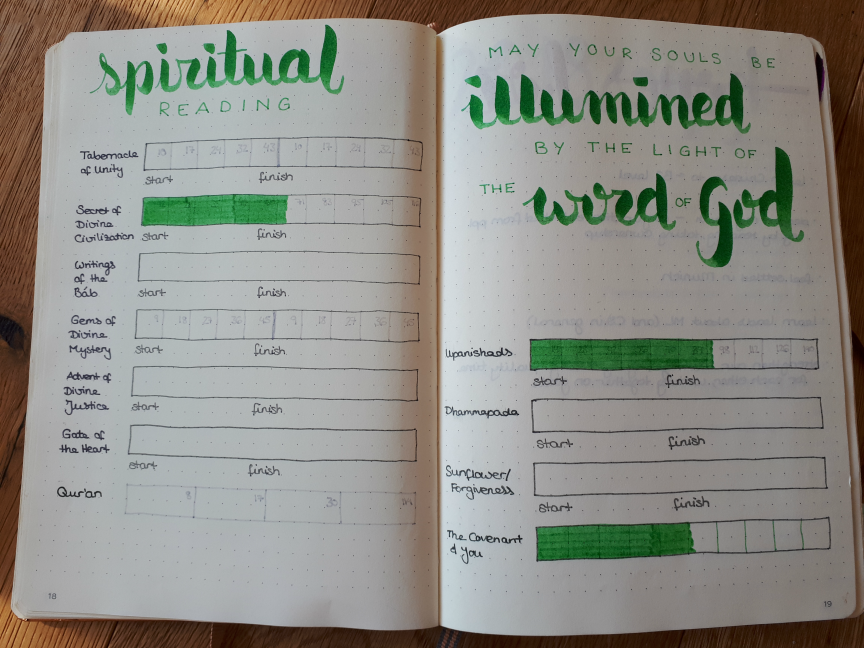 spiritual
READING
Tabernacle
of Unity
start finish
Secret of
Divine
Civilization
start finish
Writings
of the
Báb
start finish
Gems of
Divine
Mystery
start finish
Advent of
Divine
Justice
start finish
Gate of
the Heart
start finish
Qur'an
18
MAY YOUR SOULS BE
illumined
BY THE LIGHT OF
THE word OF God
Upanishads
start finish
Dhammapada
start finish
Sunflower/
Forgiveness
start finish
The Covenant
& you
19